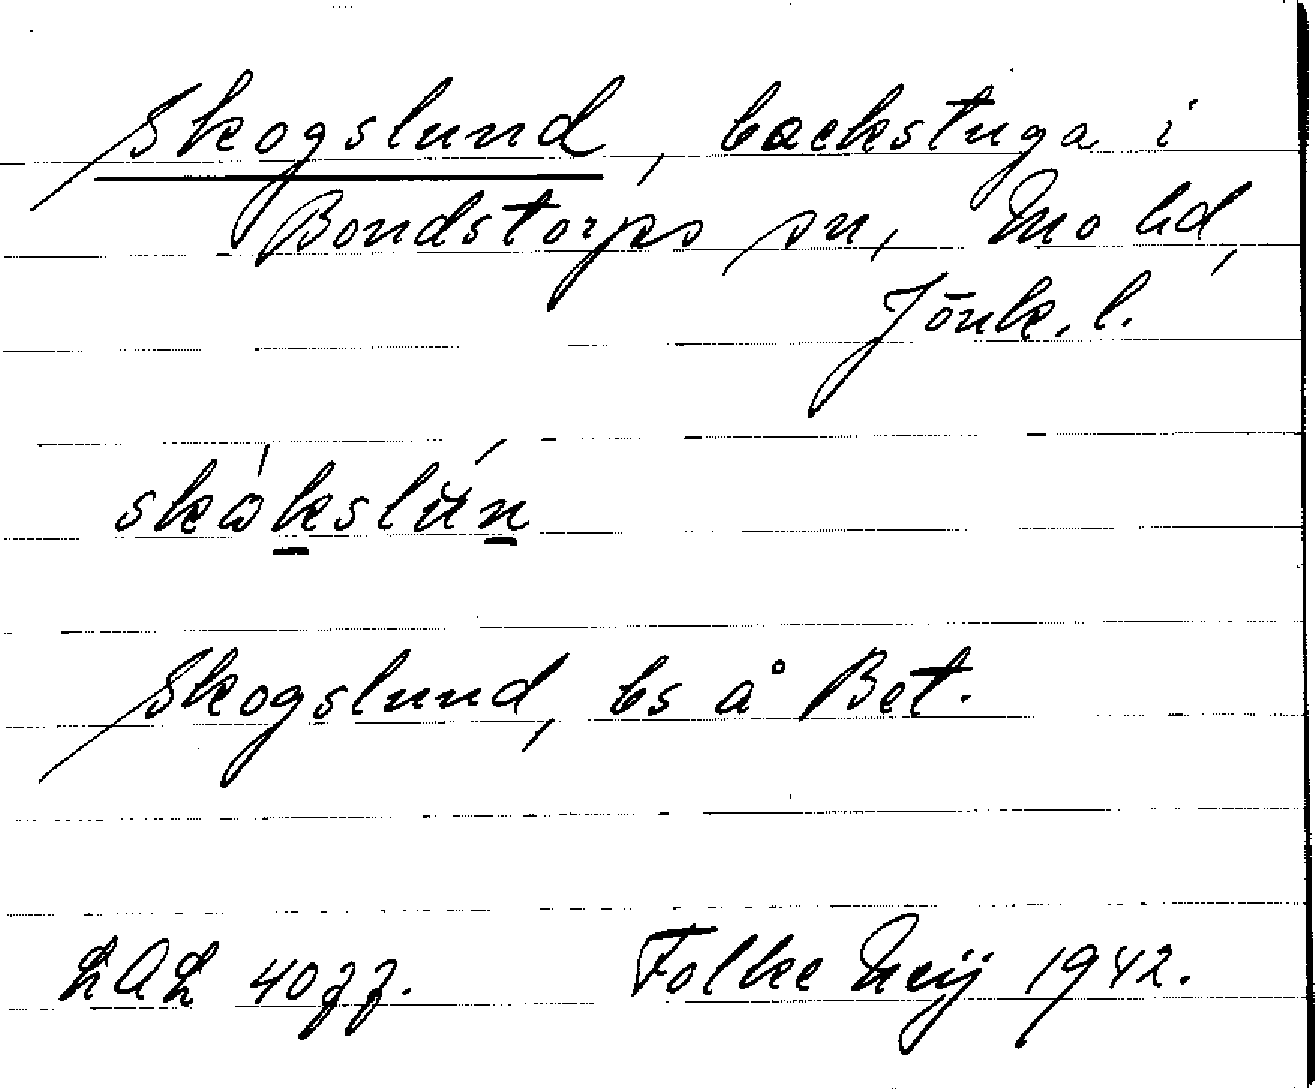 Skogslund, backstuga i
Bondstorps sn, Mo hd,
Jönk. l.
skȯkslún
Skogslund, bs å Bet.
Folke 1942.